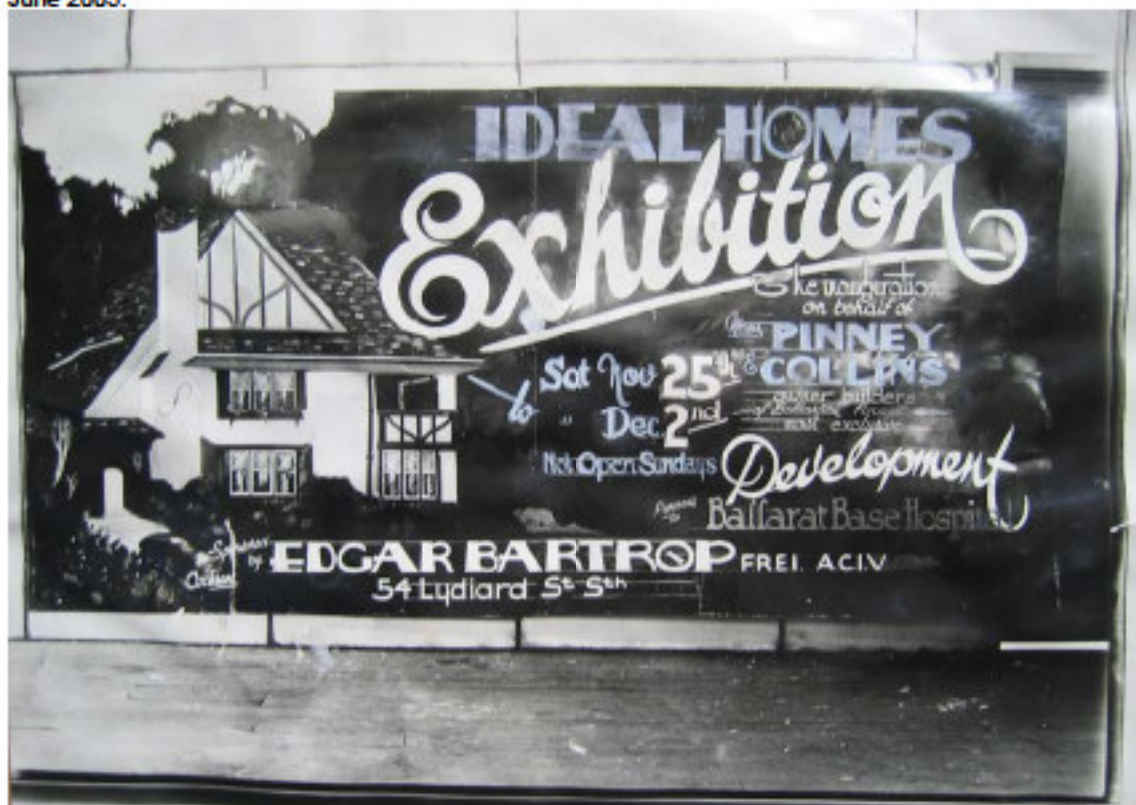 June 2005.
IDEAL HOMES
Exhibition
The inauguration
on behalf of
PINNEY
& COLLINS
owner builders
most exclusive
Sat Nov 25th
to " Dec. 2nd
Not Open Sundays
Development
Ballarat Base Hospital
by EDGAR BARTROP FREI. ACIV
54 Lydiard St Sth